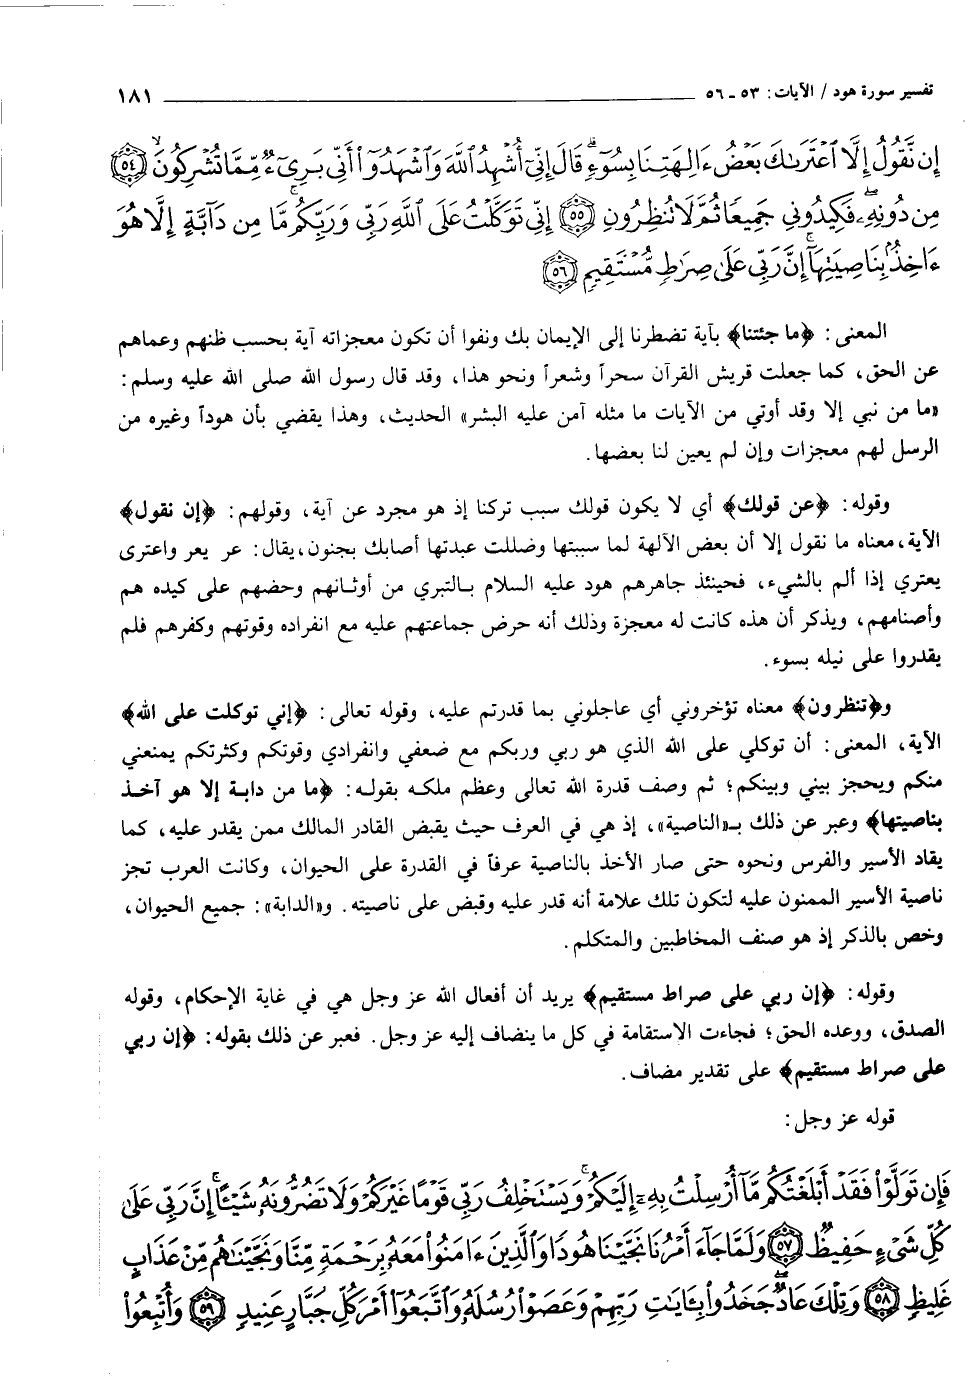 تفسير سورة هود / الآيات: ٥٣ - ٥٦ ١٨١
إِن نَّقُولُ إِلَّا ٱعْتَرَىٰكَ بَعْضُ ءَالِهَتِنَا بِسُوٓءٍۗ قَالَ إِنِّىٓ أُشْهِدُ ٱللَّهَ وَٱشْهَدُوٓا۟ أَنِّى بَرِىٓءٌ مِّمَّا تُشْرِكُونَۙ ﴿٥٤﴾
مِن دُونِهِۦۖ فَكِيدُونِى جَمِيعًا ثُمَّ لَا تُنظِرُونِ ﴿٥٥﴾ إِنِّى تَوَكَّلْتُ عَلَى ٱللَّهِ رَبِّى وَرَبِّكُمۚ مَّا مِن دَآبَّةٍ إِلَّا هُوَ
ءَاخِذٌۢ بِنَاصِيَتِهَآۚ إِنَّ رَبِّى عَلَىٰ صِرَٰطٍ مُّسْتَقِيمٍ ﴿٥٦﴾
المعنى: ﴿ما جئتنا﴾ بآية تضطرنا إلى الإيمان بك ونفوا أن تكون معجزاته آية بحسب ظنهم وعماهم
عن الحق، كما جعلت قريش القرآن سحراً وشعراً ونحو هذا، وقد قال رسول الله صلى الله عليه وسلم:
«ما من نبي إلا وقد أوتي من الآيات ما مثله آمن عليه البشر» الحديث، وهذا يقضي بأن هوداً وغيره من
الرسل لهم معجزات وإن لم يعين لنا بعضها.
وقوله: ﴿عن قولك﴾ أي لا يكون قولك سبب تركنا إذ هو مجرد عن آية، وقولهم: ﴿إن نقول﴾
الآية، معناه ما نقول إلا أن بعض الآلهة لما سببتها وضللت عبدتها أصابك بجنون، يقال: عر يعر واعترى
يعتري إذا ألم بالشيء، فحينئذ جاهرهم هود عليه السلام بالتبري من أوثانهم وحضهم على كيده هم
وأصنامهم، ويذكر أن هذه كانت له معجزة وذلك أنه حرض جماعتهم عليه مع انفراده وقوتهم وكفرهم فلم
يقدروا على نيله بسوء.
و﴿تنظرون﴾ معناه تؤخروني أي عاجلوني بما قدرتم عليه، وقوله تعالى: ﴿إني توكلت على الله﴾
الآية، المعنى: أن توكلي على الله الذي هو ربي وربكم مع ضعفي وانفرادي وقوتكم وكثرتكم يمنعني
منكم ويحجز بيني وبينكم؛ ثم وصف قدرة الله تعالى وعظم ملكه بقوله: ﴿ما من دابة إلا هو آخذ
بناصيتها﴾ وعبر عن ذلك بـ«الناصية»، إذ هي في العرف حيث يقبض القادر المالك ممن يقدر عليه، كما
يقاد الأسير والفرس ونحوه حتى صار الأخذ بالناصية عرفاً في القدرة على الحيوان، وكانت العرب تجز
ناصية الأسير الممنون عليه لتكون تلك علامة أنه قدر عليه وقبض على ناصيته. و«الدابة»: جميع الحيوان،
وخص بالذكر إذ هو صنف المخاطبين والمتكلم.
وقوله: ﴿إن ربي على صراط مستقيم﴾ يريد أن أفعال الله عز وجل هي في غاية الإحكام، وقوله
الصدق، ووعده الحق؛ فجاءت الاستقامة في كل ما ينضاف إليه عز وجل. فعبر عن ذلك بقوله: ﴿إن ربي
على صراط مستقيم﴾ على تقدير مضاف.
قوله عز وجل:
فَإِن تَوَلَّوْا۟ فَقَدْ أَبْلَغْتُكُم مَّآ أُرْسِلْتُ بِهِۦٓ إِلَيْكُمْۚ وَيَسْتَخْلِفُ رَبِّى قَوْمًا غَيْرَكُمْ وَلَا تَضُرُّونَهُۥ شَيْـًٔاۚ إِنَّ رَبِّى عَلَىٰ
كُلِّ شَىْءٍ حَفِيظٌ ﴿٥٧﴾ وَلَمَّا جَآءَ أَمْرُنَا نَجَّيْنَا هُودًا وَٱلَّذِينَ ءَامَنُوا۟ مَعَهُۥ بِرَحْمَةٍ مِّنَّا وَنَجَّيْنَٰهُم مِّنْ عَذَابٍ
غَلِيظٍ ﴿٥٨﴾ وَتِلْكَ عَادٌۖ جَحَدُوا۟ بِـَٔايَٰتِ رَبِّهِمْ وَعَصَوْا۟ رُسُلَهُۥ وَٱتَّبَعُوٓا۟ أَمْرَ كُلِّ جَبَّارٍ عَنِيدٍ ﴿٥٩﴾ وَأُتْبِعُوا۟